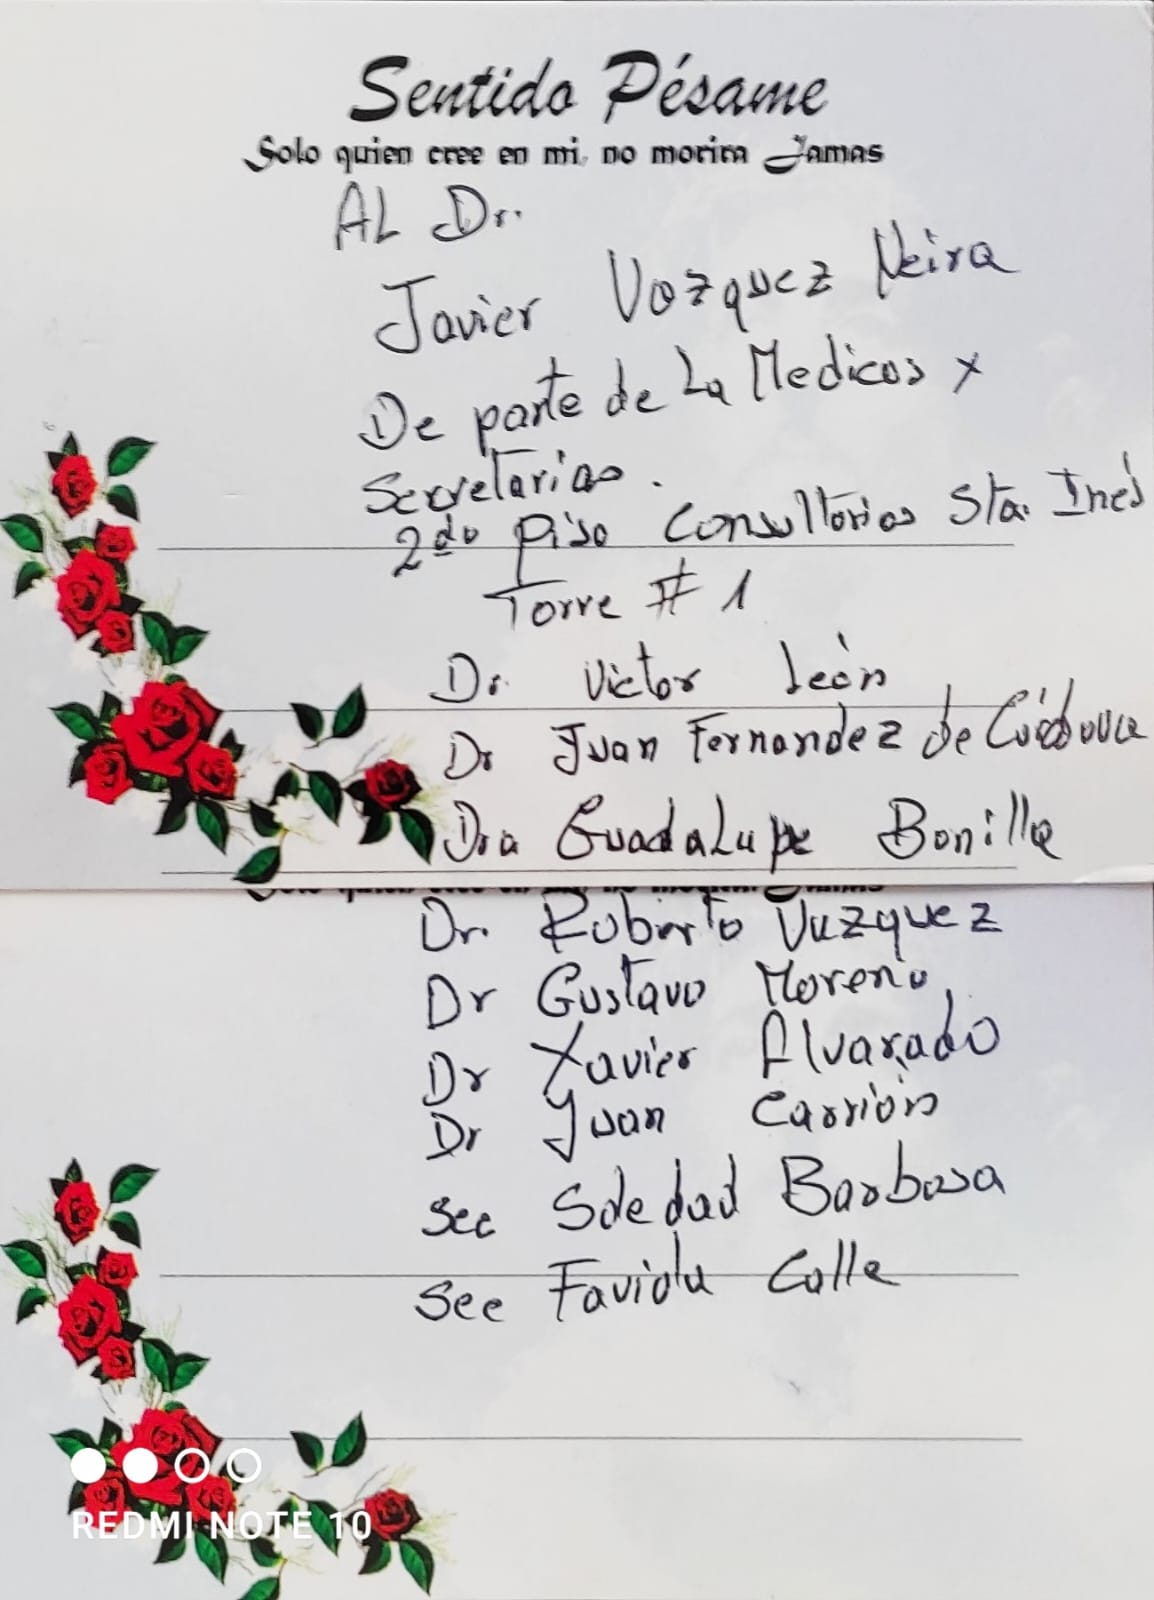 Sentido Pésame
Solo quien cree en mi, no morira Jamas
AL Dr.
Javier Vazquez Neira
De parte de La Medicos x
Secretarias.
2do Piso Consultorios Sta. Inés
Torre # 1
Dr. Victor León
Dr Juan Fernandez de Córdova
Dra Guadalupe Bonilla
Dr. Roberto Vazquez
Dr Gustavo Moreno
Dr Xavier Alvarado
Dr Juan Carrión
Sec Soledad Barbosa
Sec Faviola Calle
REDMI NOTE 10